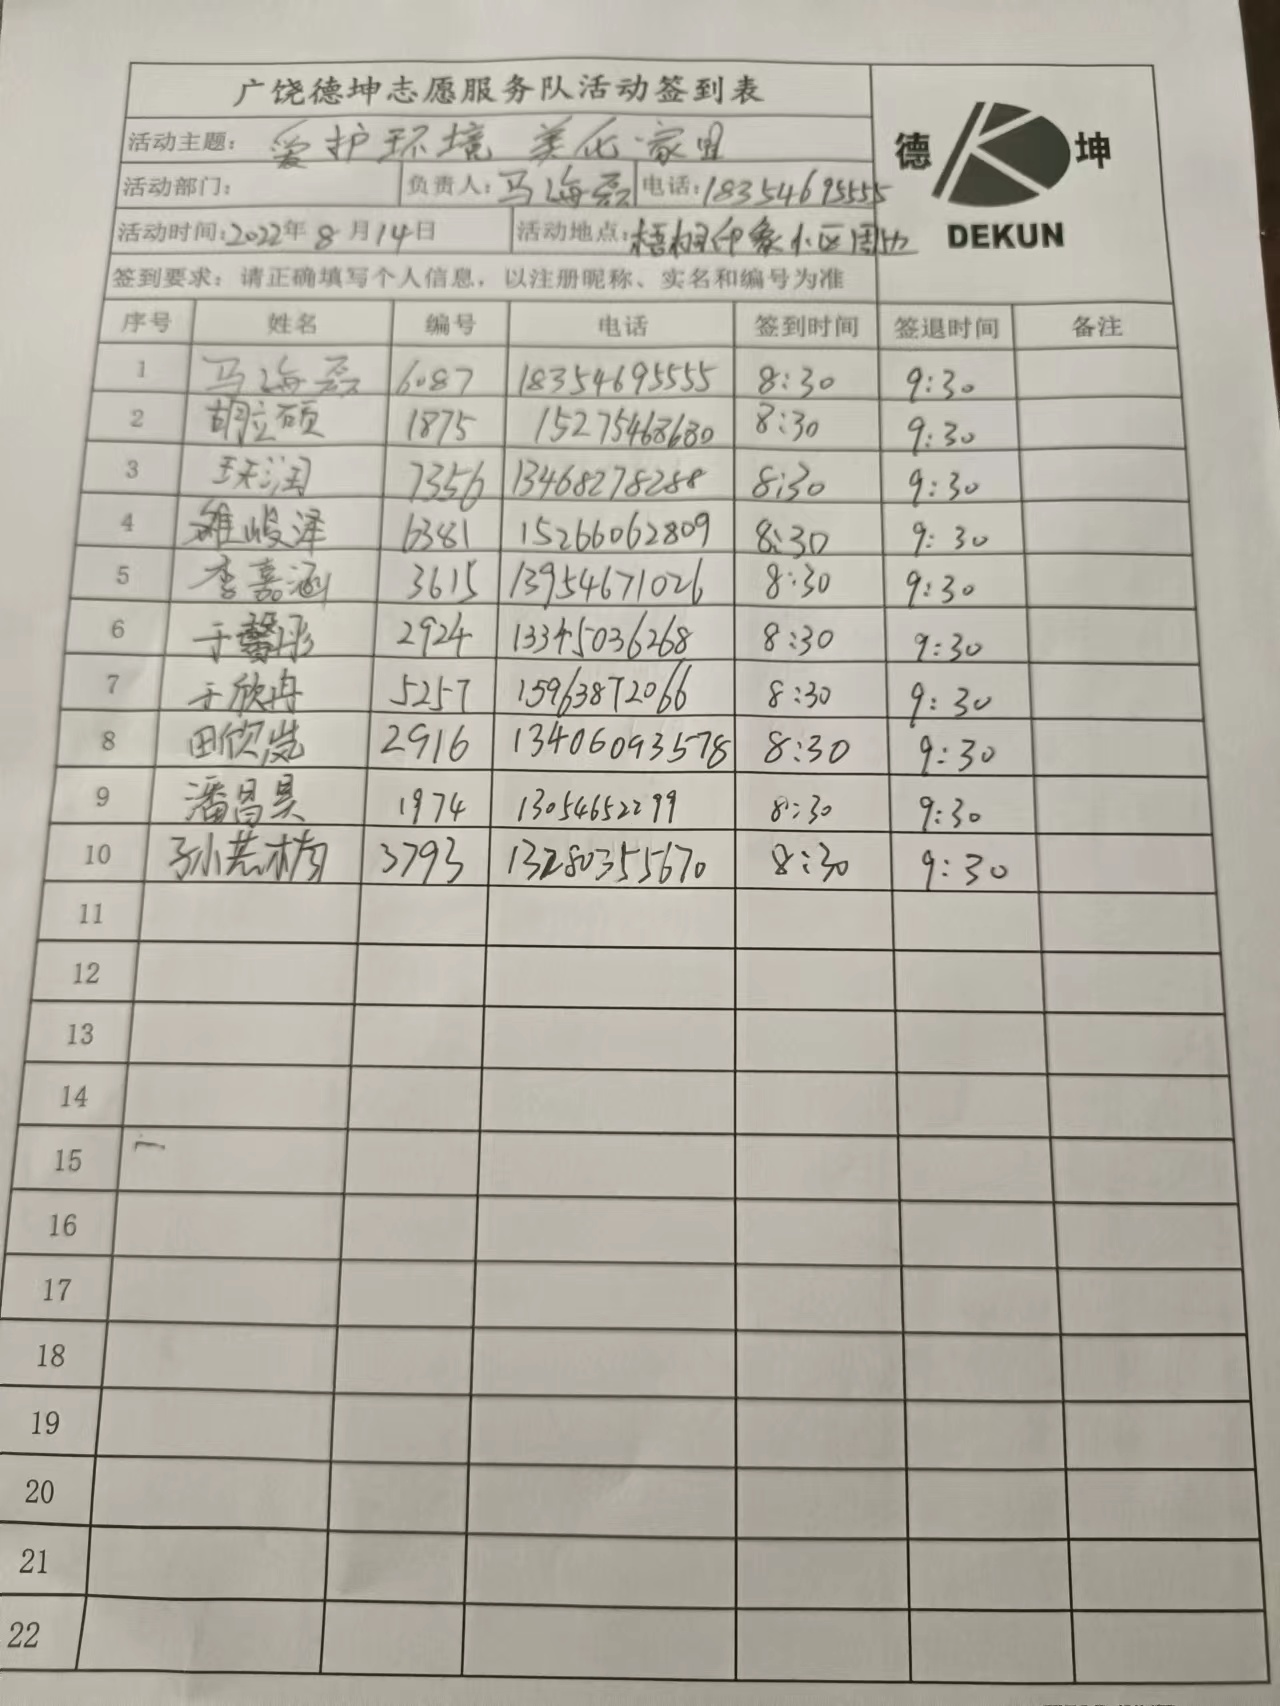 广饶德坤志愿服务队活动签到表
德 坤
DEKUN
活动主题： 爱护环境 美化家园
活动部门： 负责人：马海磊 电话：18354695555
活动时间：2022年8月14日 活动地点：梧桐印象小区周边
签到要求：请正确填写个人信息，以注册昵称、实名和编号为准
序号 姓名 编号 电话 签到时间 签退时间 备注
1 马海磊 6087 18354695555 8:30 9:30
2 胡立硕 1875 15275468680 8:30 9:30
3 7356 13468278288 8:30 9:30
4 峻泽 6381 15266062809 8:30 9:30
5 李嘉涵 3615 13954671026 8:30 9:30
6 于馨彤 2924 13345036268 8:30 9:30
7 于欣冉 5257 15963872066 8:30 9:30
8 田欣岚 2916 13406093578 8:30 9:30
9 潘昌昊 1974 13054652299 8:30 9:30
10 孙若楠 3793 13280355670 8:30 9:30
11
12
13
14
15
16
17
18
19
20
21
22